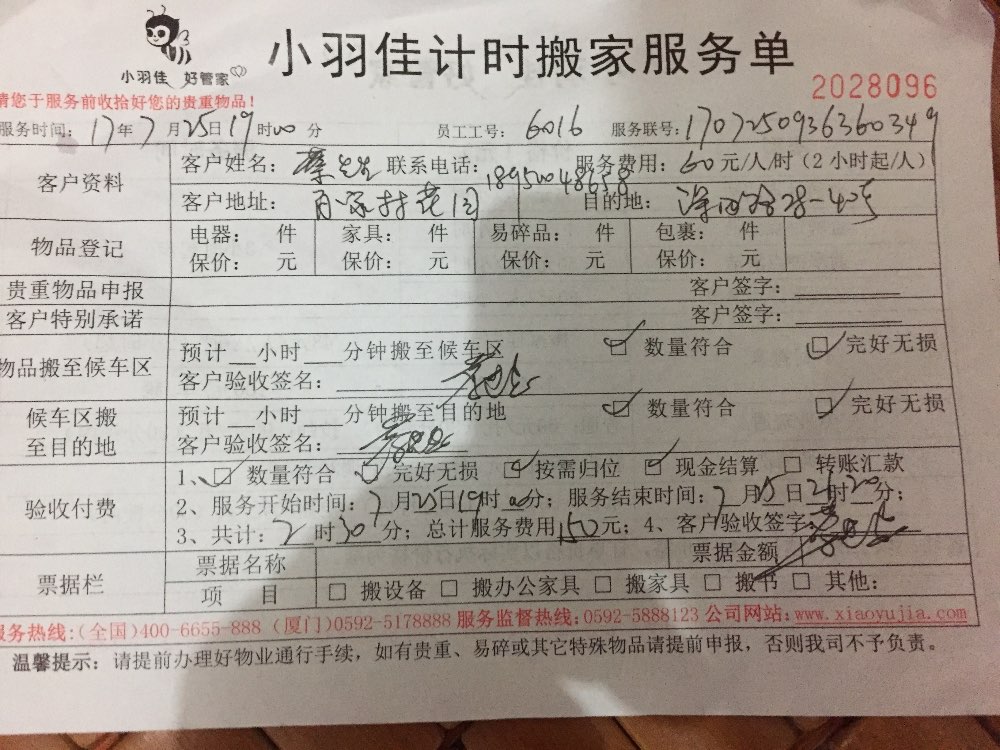 小羽佳 好管家
小羽佳计时搬家服务单
2028096
请您于服务前收拾好您的贵重物品！
服务时间：17年7月25日19时00分 员工工号：6016 服务联号：1707250936360349
客户资料 客户姓名：蔡先生 联系电话：18950048658 服务费用：60元/人/时（2小时起/人）
客户地址： 目的地：
物品登记 电器： 件 家具： 件 易碎品： 件 包裹： 件
保价： 元 保价： 元 保价： 元 保价： 元
贵重物品申报 客户签字：
客户特别承诺 客户签字：
物品搬至候车区 预计__小时___分钟搬至候车区 ☑ 数量符合 ☑ 完好无损
客户验收签名：
候车区搬至目的地 预计__小时___分钟搬至目的地 ☑ 数量符合 ☑ 完好无损
客户验收签名：
验收付费 1、☑ 数量符合 ☑ 完好无损 ☑ 按需归位 ☑ 现金结算 □ 转账汇款
2、服务开始时间：7月25日19时00分；服务结束时间：7月25日21时20分；
3、共计：2时30分；总计服务费用150元；4、客户验收签字
票据栏 票据名称 票据金额
项 目 □ 搬设备 □ 搬办公家具 □ 搬家具 □ 搬书 □ 其他：
服务热线:(全国)400-6655-888 (厦门)0592-5178888 服务监督热线:0592-5888123 公司网站:www.xiaoyujia.com
温馨提示：请提前办理好物业通行手续，如有贵重、易碎或其它特殊物品请提前申报，否则我司不予负责。